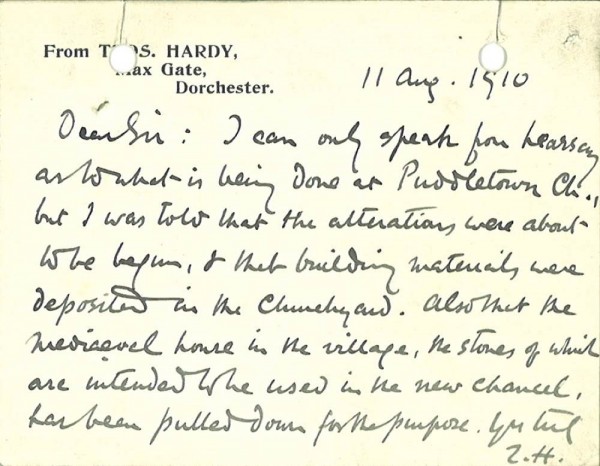 From THOS. HARDY,
Max Gate,
Dorchester.
11 Aug. 1910
Dear Sir: I can only speak from hearsay
as to what is being done at Puddletown Ch.,
but I was told that the alterations were about
to be begun, & that building materials were
deposited in the Churchyard. Also that the
mediaeval house in the village, the stones of which
are intended to be used in the new chancel,
has been pulled down for the purpose. Yrs truly
T.H.